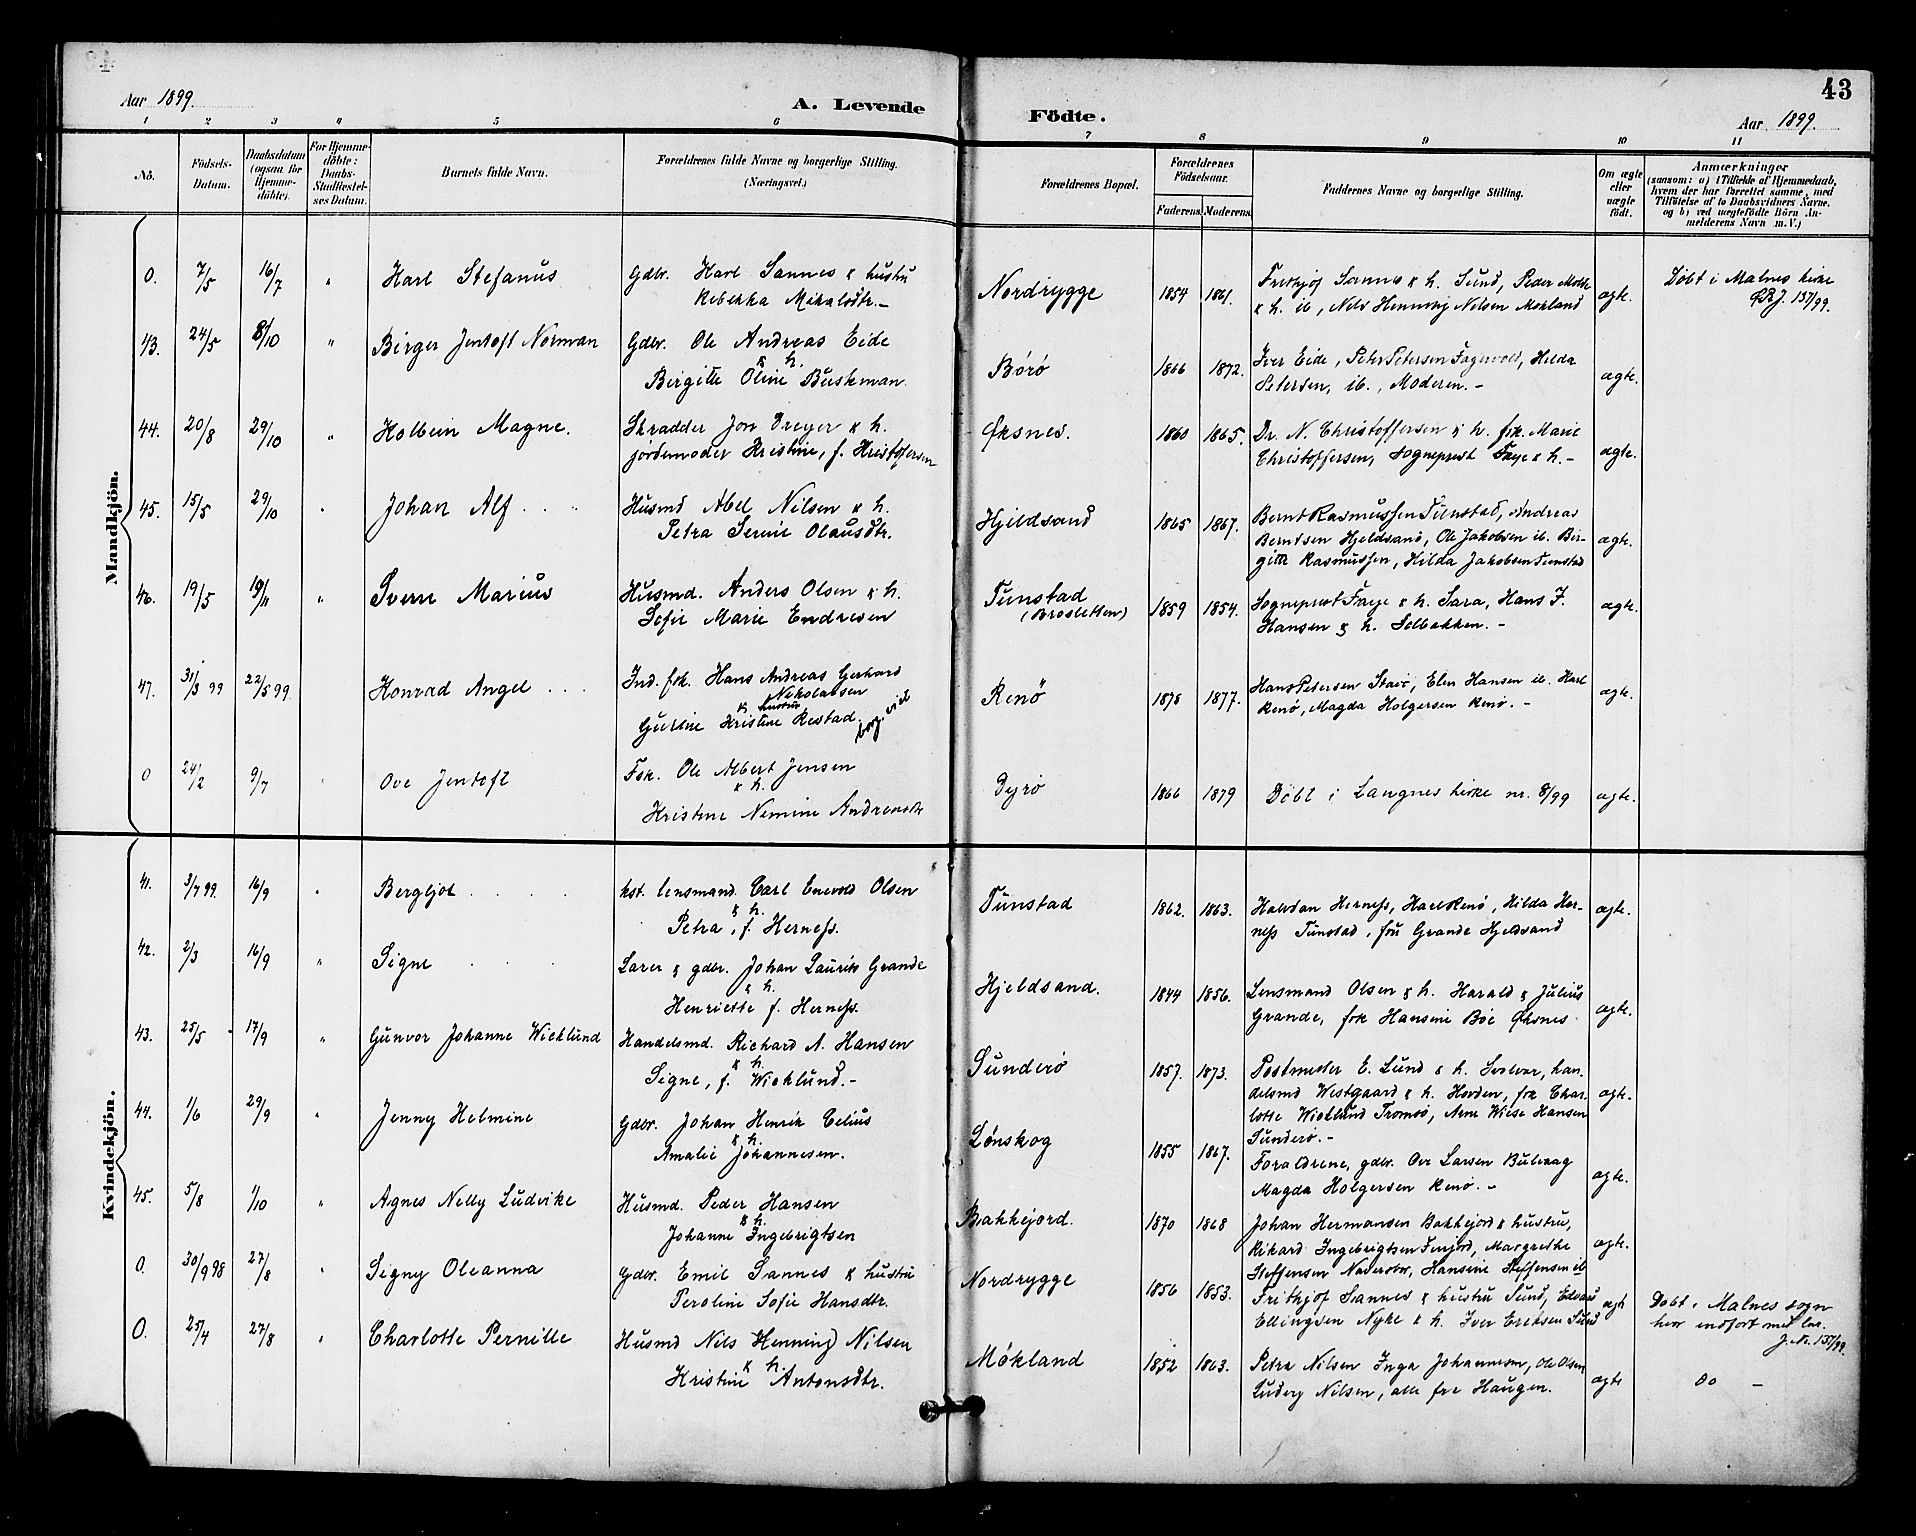 43
Aar 1899.
A. Levende Födte.
Aar 1899.
1 2 3 4 5 6 7 8 9 10 11
No.
Födsels-
Datum.
Daabsdatum
(ogsaa for
Hjemme-
døbte).
For Hjemme-
döbte:
Daabs-
Stadfæstel-
ses Datum.
Barnets fulde Navn.
Forældrenes fulde Navne og borgerlige Stilling.
(Næringsvei.)
Forældrenes Bopæl.
Forældrenes
Födselsaar.
Faderens. Moderens.
Faddernes Navne og borgerlige Stilling.
Om ægte
eller
uægte
födt.
Anmærkninger
(saasom: a) i Tilfælde af Hjemmedaab,
hvem der har forrettet samme, med
Tilföielse af to Daabsvidners Navne,
og b) ved uægtefödte Börn An-
melderens Navn m. V.)
Mandkjön.
0. 7/5 16/7 " Karl Stefanus Gdbr. Karl Sannes & hustru
Rebekka Mikalsdtr.-
Nordrygge 1854 1861. Frithjof Sannes & h. Sund, Peder
& h. ib, Nels Henning Nilsen Mökland ægte. Döbt i Malnes kirke
J. 137/99.
43. 24/5 8/10 " Birger Jentoft Norman Gdbr. Ole Andreas Eide
& h.
Birgitte Oline Buskman.
Börö 1866 1872. Iver Eide, Peter Petersen Fagervold, Hilda
Petersen, ib., Moderen.- ægte.
44. 20/8 29/10 " Holbein Magne. Skrædder Jon Dreyer & h.
jordemoder Kristine, f. Kristoffersen
Øksnes. 1860 1865. Dr. N. Christoffersen & h. frk. Marie
Christoffersen, Sogneprest Faye & h.- ægte.
45. 15/5 29/10 " Johan Alf Husmd Abel Nilsen & h.
Petra Serine Olausdtr.
Hjeldsand 1865 1867. Bernt Rasmussen Tunstad, Andreas
Berntsen Hjeldsand, Ole Jakobsen ib. Bir-
gitte Rasmussen, Hilda Jakobsen Tunstad ægte.
46. 19/5 19/11 " Sverre Marius Husmd. Anders Olsen & h.
Sofie Marie Endresen
Tunstad
(Brosletten) 1859 1854. Sogneprest Faye & h. Sara, Hans J.
Hansen & h. Selbakken.- ægte.
47. 31/3 99 22/5 99 Konrad Angel Ind. fsk. Hans Andreas Gerhard
Nikolaisen
& hustru
Gurine Kristine Restad. borg. viet
Renö 1878 1877. Hans Petersen Staxö, Elen Hansen ib. Karl
Renö, Magda Holgersen Renö.- ægte.
0 24/2 9/7 " Ove Jentoft Fsk. Ole Albert Jensen
& h.
Kristine Nemine Andreasdtr
Dyrö 1866 1879 Döbt i Langnes kirke nr. 8/99 ægte.
Kvindekjön.
41. 3/7 99. 16/9 " Bergljot kst. lensmand. Carl Enevold Olsen
& h.
Petra, f. Herness.
Tunstad 1862. 1863. Halvdan Herness, Karl Renö, Hilda Her-
ness Tunstad, fru Grande Hjeldsand ægte.
42. 2/3 16/9 " Signe Lærer & gdbr. Johan Laurits Grande
& h.
Henriette f. Herness.
Hjeldsand. 1844 1856. Lensmand Olsen & h. Harald & Julius
Grande, frk Hansine Böe Øksnes. ægte.
43. 25/5 17/9 " Gunvor Johanne Wicklund Handelsmd. Richard A. Hansen
& h.
Signe, f. Wicklund.-
Sunderö 1857. 1873. Postmester E. Lund & h. Svolvær, han-
delsmd Westgaard & h. Hovden, frk Char-
lotte Wicklund Tromsö, Arne Wiese Hansen
Sunderö.- ægte.
44. 1/6 29/9 " Jenny Helmine Gdbr. Johan Henrik Celius
& h.
Amalie Johannesen.
Lönskog 1855 1867. Forældrene, gdbr. Ove Larsen Bulvaag
Magda Holgersen Renö.- ægte.
45. 5/8 1/10 " Agnes Nelly Ludvike Husmd. Peder Hansen
& h.
Johanne Ingebrigtsen
Bakkejord. 1870 1868 Johan Hermansen Bakkejord & hustru,
Rikard Ingebrigtsen Finjord, Margrethe
Steffensen, Hansine Steffensen ib ægte.
0. 30/9 98 27/8 " Signy Oleanna Gdbr. Emil Sannes & hustru
Peroline Sofie Hansdtr.
Nordrygge 1856 1853. Frithjof Sannes & hustru Sund, Edvard
Ellingsen Nyke & h. Iver Eriksen Sund ægte Döbt i Malnes sogn
hvor indfört med lnr.
J. Nr. 137/99.
0. 25/4 27/8 " Charlotte Pernille Husmd Nils Henning Nilsen
& h.
Kristine Antonsdtr.
Mökland 1852 1863. Petra Nilsen Inga Johannesen, Ole Olsen
Ludvig Nilsen, alle fra Haugen. ægte Do -